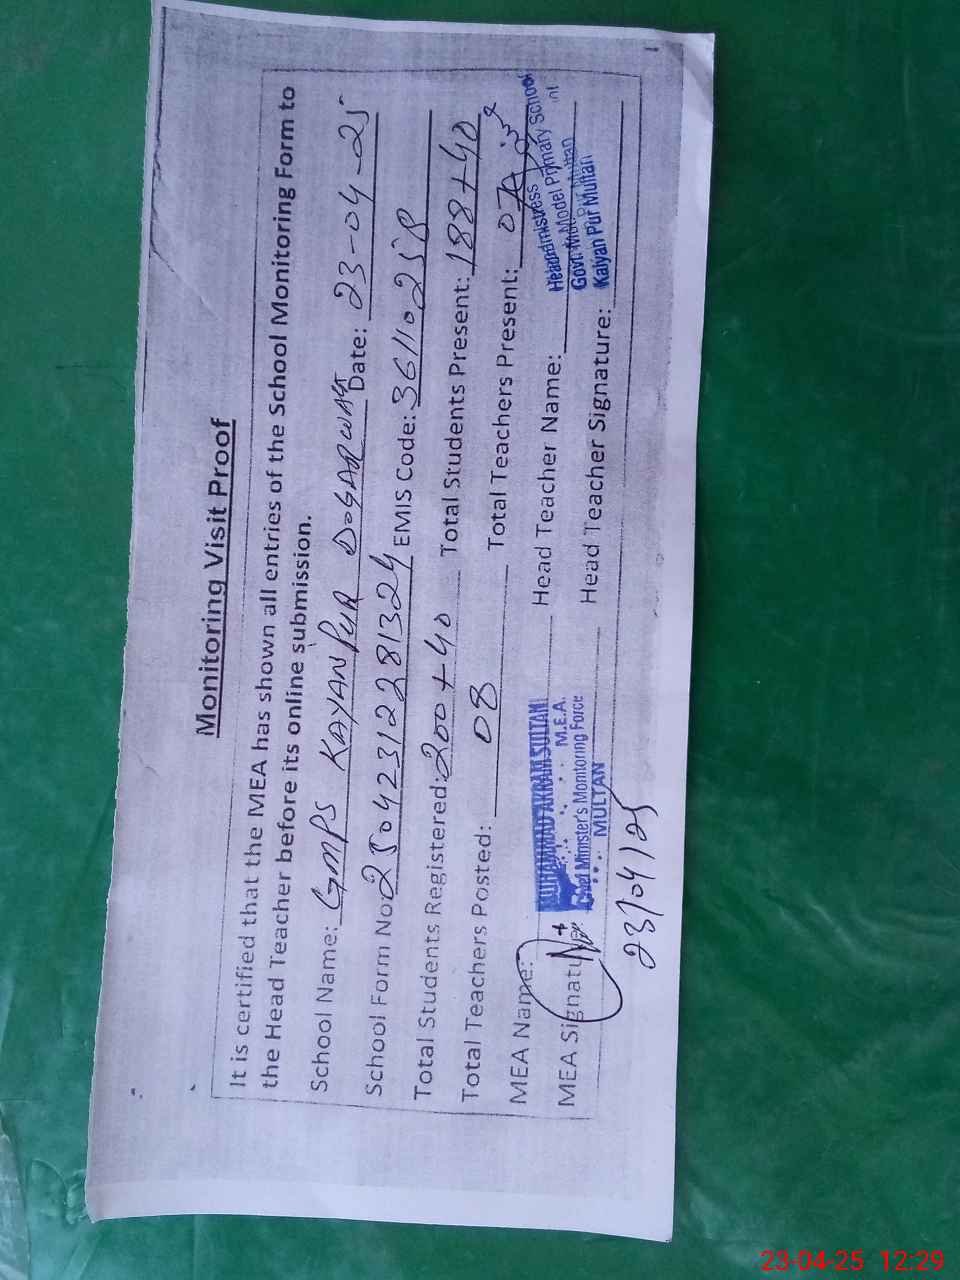 Monitoring Visit Proof
It is certified that the MEA has shown all entries of the School Monitoring Form to
the Head Teacher before its online submission.
School Name: GMPS KAYANPUR DOGARWAST Date: 23-04-25
School Form No 250423122281324 EMIS Code: 36110258
Total Students Registered: 200+40 Total Students Present: 188+40
Total Teachers Posted: 08 Total Teachers Present: 07
MEA Name: MUHAMMAD AKRAM SULTANI Head Teacher Name:
M.E.A.
Chief Minster's Monitoring Force
MULTAN
MEA Signature Head Teacher Signature:
Headmistress
Govt. Model Primary School
Kalyan Pur Multan
23/04/25
23-04-25 12:29